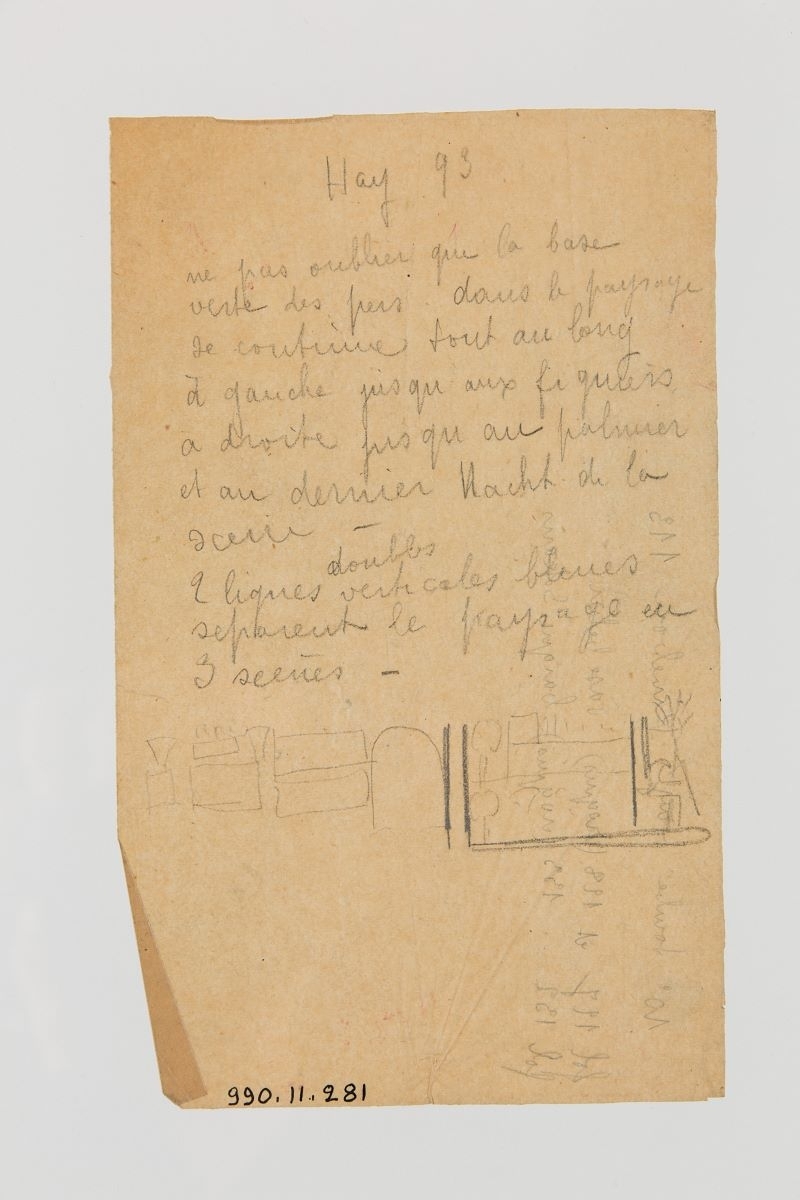 Hay 93
ne pas oublier que la base
verte des pers. dans le paysage
se continue tout au long
à gauche jusqu aux figuiers
a droite jusqu au palmier
et au dernier Nacht de la
scene –
doubles
2 lignes verticales bleues
separent le paysage en
3 scenes –
990.11.281